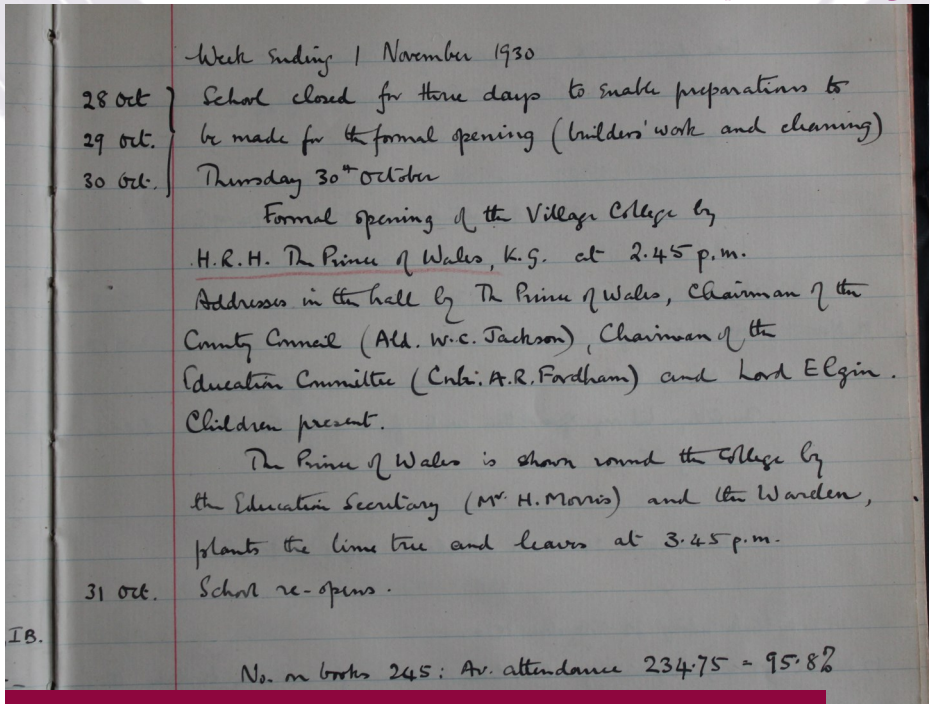 Week ending 1 November 1930
28 Oct School closed for three days to enable preparations to
29 Oct. be made for the formal opening (builders' work and cleaning)
30 Oct. Thursday 30th October
Formal opening of the Village College by
H.R.H. The Prince of Wales, K.G. at 2.45 p.m.
Addresses in the hall by The Prince of Wales, Chairman of the
County Council (Ald. W.C. Jackson), Chairman of the
Education Committee (A.R. Fordham) and Lord Elgin.
Children present.
The Prince of Wales is shown round the College by
the Education Secretary (Mr. H. Morris) and the Warden,
plants the lime tree and leaves at 3.45 p.m.
31 Oct. School re-opens.
IB.
No. on books 245: Av. attendance 234.75 = 95.8%